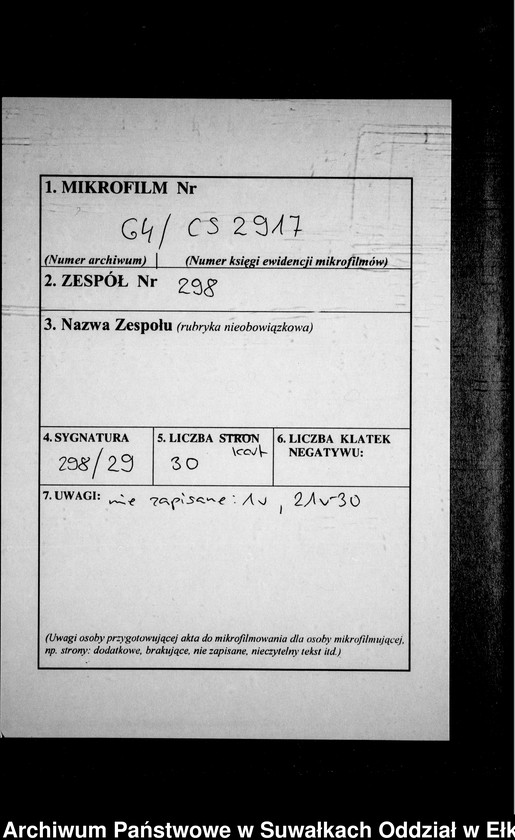 1. MIKROFILM Nr
64/ CS 2917
(Numer archiwum) | (Numer księgi ewidencji mikrofilmów)
2. ZESPÓŁ Nr 298
3. Nazwa Zespołu (rubryka nieobowiązkowa)
4. SYGNATURA
298/29
5. LICZBA STRON
kart
30
6. LICZBA KLATEK
NEGATYWU:
7. UWAGI: nie zapisane: 1v, 21v-30
(Uwagi osoby przygotowującej akta do mikrofilmowania dla osoby mikrofilmującej,
np. strony: dodatkowe, brakujące, nie zapisane, nieczytelny tekst itd.)
Archiwum Państwowe w Suwałkach Oddział w Ełk